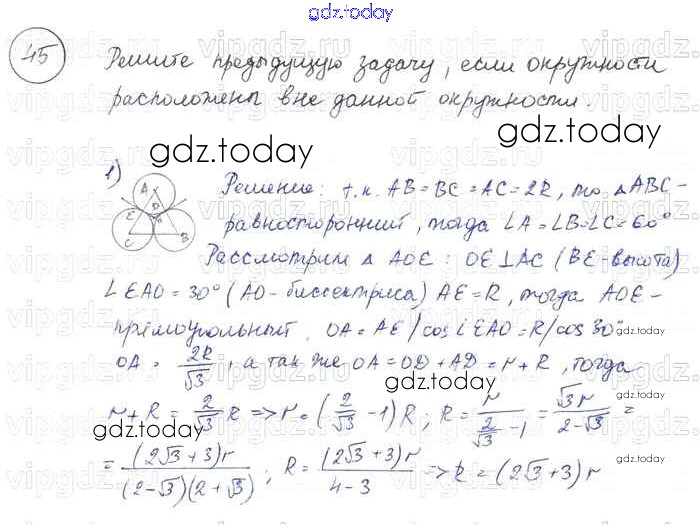 gdz.today
45
Решите предыдущую задачу, если окружности
расположены вне данной окружности.
gdz.today
gdz.today
1)
A
E
D
O
C
B
Решение: т.к. AB = BC = AC = 2R, то △ABC -
равносторонний, тогда ∠A = ∠B = ∠C = 60°
Рассмотрим △ AOE : OE⊥AC (BE - высота)
∠EAO = 30° (AO - биссектриса) AE = R, тогда AOE -
прямоугольный. OA = AE / cos∠EAO = R / cos 30°
gdz.today
OA = 2R/√3, а так же OA = OD + AD = r + R, тогда
gdz.today
r + R = 2/√3 R => r = (2/√3 - 1) R ; R = r/(2/√3 - 1) = √3 r/(2 - √3) =
gdz.today
gdz.today
= (2√3 + 3) r/((2 - √3)(2 + √3)) ; R = (2√3 + 3) r/(4 - 3) => R = (2√3 + 3) r
gdz.today